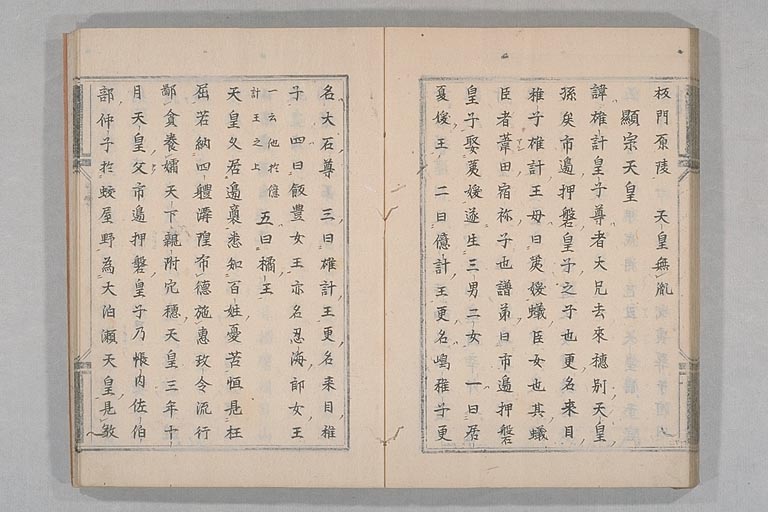 坂門原陵 天皇無胤
顯宗天皇
諱雄計皇子尊者大兄去來穗別天皇
孫矣市邊押磐皇子之子也更名來目
稚子雄計王母曰荑媛蟻臣女也其蟻
臣者葦田宿祢子也譜第曰市邊押磐
皇子娶荑媛遂生三男二女一曰居
夏媛王二曰億計王更名嶋稚子更
名大石尊三曰雄計王更名来目稚
子四曰飯豊女王亦名忍海部女王
一云他於億
計王之上
五曰橘王
天皇久居邊裔悉知百姓憂苦恒見枉
屈若納四軆溝隍布德施惠政令流行
邮貪養孀天下親附穴穗天皇三年十
月天皇父市邊押磐皇子乃帳内佐伯
部仲子於蛟屋野為大泊瀬天皇見殺